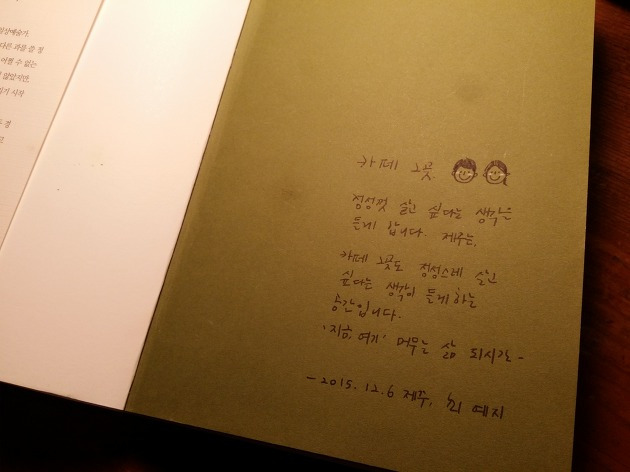 카페 그곳.
정성껏 살고 싶다는 생각을
들게 합니다. 제주는.
카페 그곳도 정성스레 살고
싶다는 생각이 들게 하는
공간입니다.
'지금, 여기' 머무는 삶 되시길-
- 2015. 12. 6 제주, 최예지